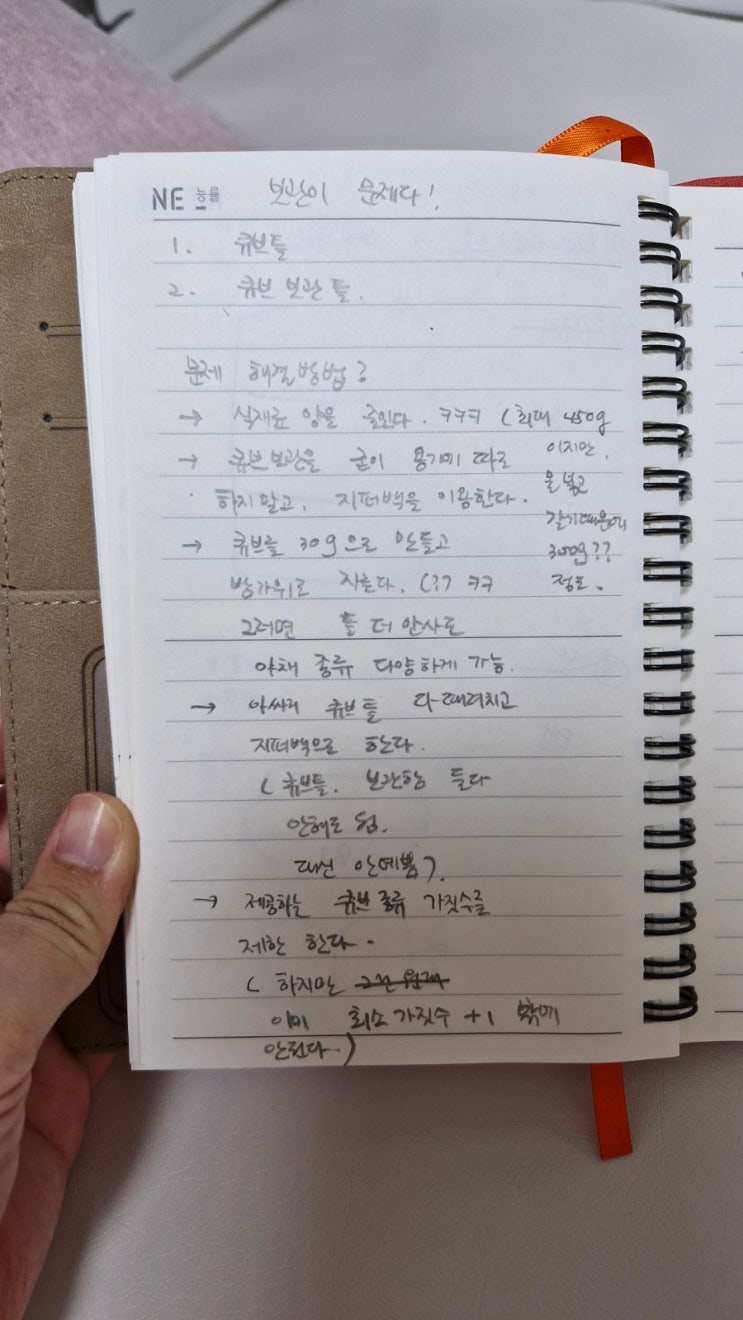 NE 능률
보관이 문제다!
1. 큐브틀
2. 큐브 보관 틀.
문제 해결방법?
→ 식재료 양을 줄인다. ㅋㅋㅋ (최대 450g
이지만,
물 넣고
갈기때문에
300g??
정도.
→ 큐브보관을 굳이 용기에 따로
하지말고, 지퍼백을 이용한다.
→ 큐브를 30g으로 만들고
반가위로 자른다. (?? ㅋㅋ
그러면 틀 더 안사도
야채 종류 다양하게 가능.
→ 아싸리 큐브틀 다-때려치고
지퍼백으로 한다.
( 큐브틀, 보관함 둘다
안해도 됨.
대신 안예쁨?).
→ 제공하는 큐브 종류 가짓수를
제한 한다.
( 하지만
이미 최소 가짓수 +1 밖에
안된다..)